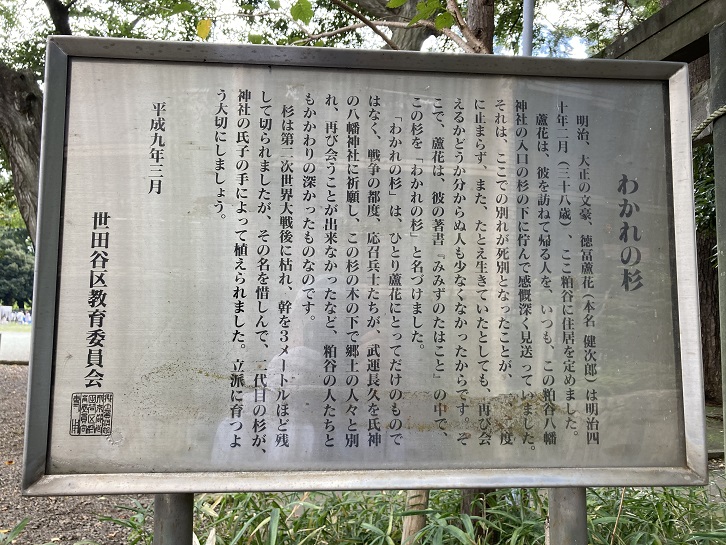 わかれの杉
明治、大正の文豪、徳冨蘆花（本名 健次郎）は明治四
十年二月（三十八歳）、ここ粕谷に住居を定めました。
蘆花は、彼を訪ねて帰る人を、いつも、この粕谷八幡
神社の入口の杉の下に佇んで感慨深く見送っていました。
それは、ここでの別れが死別となったことが、一、二度
に止まらず、また、たとえ生きていたとしても、再び会
えるかどうか分からぬ人も少なくなかったからです。そ
こで、蘆花は、彼の著書『みみずのたはこと』の中で、
この杉を「わかれの杉」と名づけました。
「わかれの杉」は、ひとり蘆花にとってだけのもので
はなく、戦争の都度、応召兵士たちが、武運長久を氏神
の八幡神社に祈願し、この杉の木の下で郷土の人々と別
れ、再び会うことが出来なかったなど、粕谷の人たちと
もかかわりの深かったものなのです。
杉は第二次世界大戦後に枯れ、幹を3メートルほど残
して切られましたが、その名を惜しんで、二代目の杉が、
神社の氏子の手によって植えられました。立派に育つよ
う大切にしましょう。
平成九年三月
世田谷区教育委員会